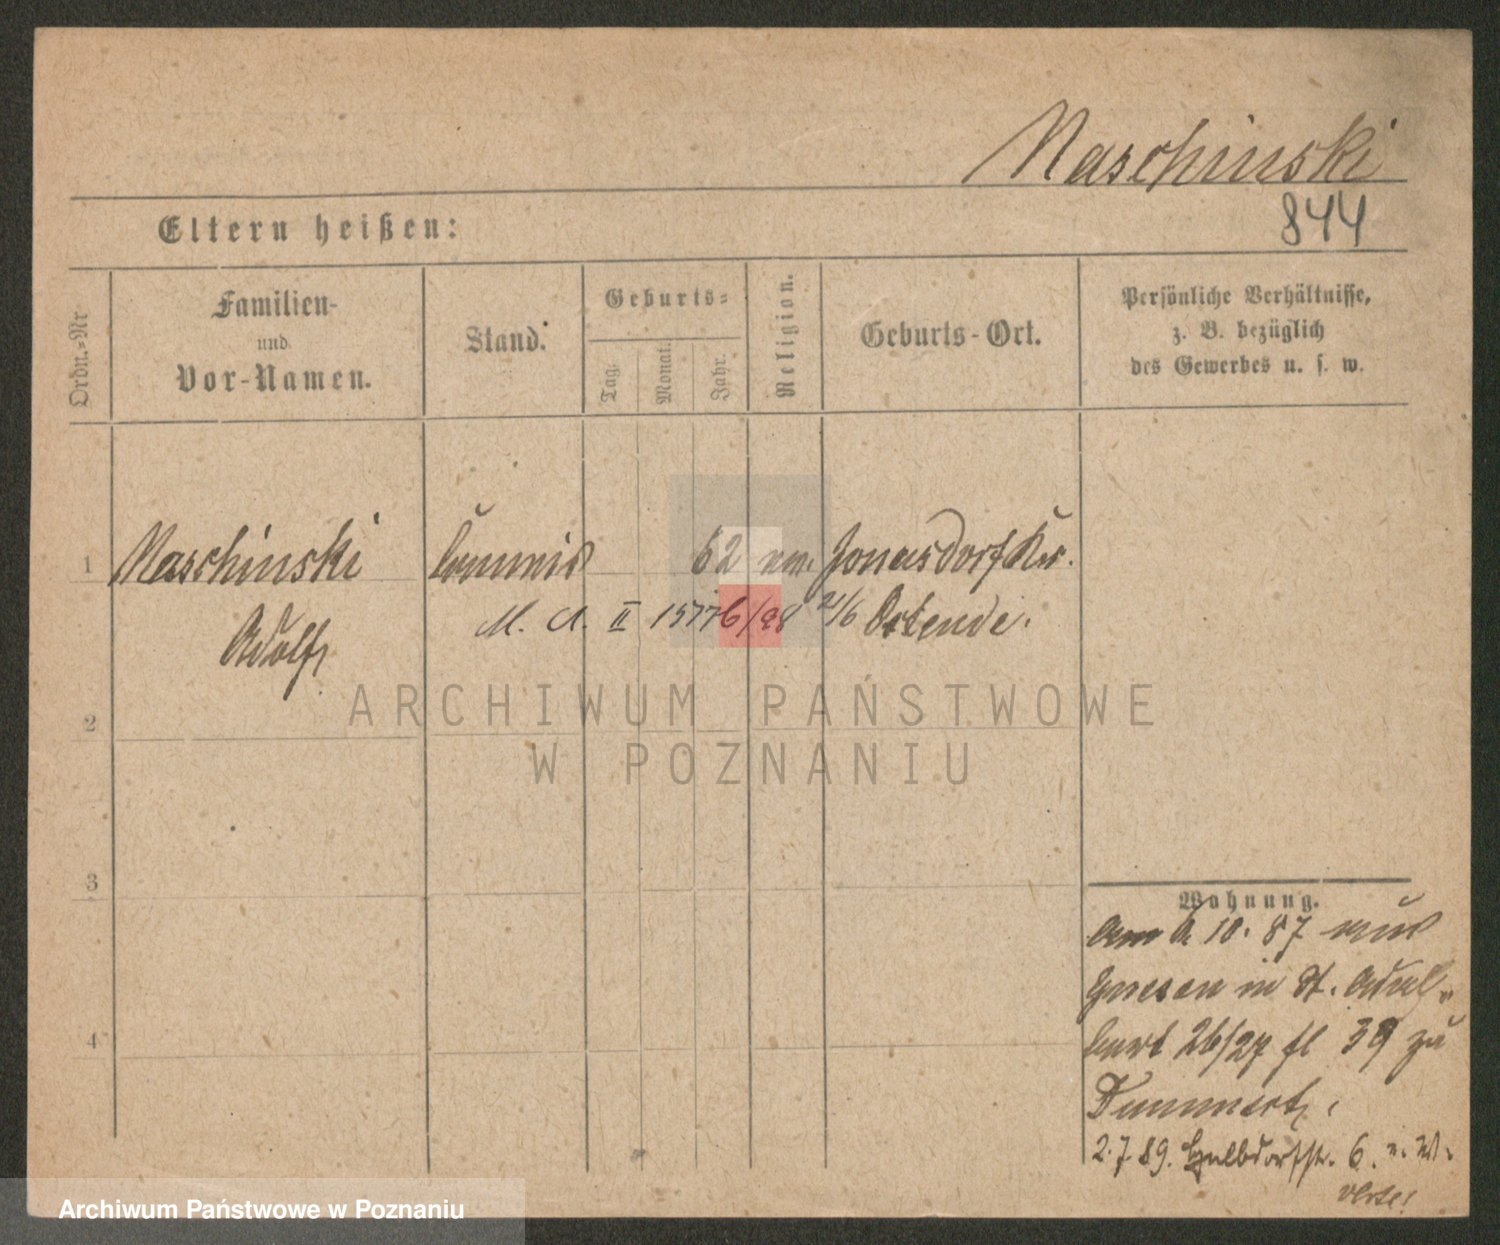 Maschinski
844
Eltern heißen:
Ordn.-Nr
Familien-
und
Vor-Namen.
Stand.
Geburts-
Tag.
Monat.
Jahr.
Religion.
Geburts-Ort.
Persönliche Verhältnisse,
z. B. bezüglich
des Gewerbes u. s. w.
1
Maschinski
Commis
62
Jonasdorf Kr.
Adolf
M. A. II 15776/98 21/6
Ostende.
ARCHIWUM PAŃSTWOWE
W POZNANIU
2
3
4
Wohnung.
Am 6. 10. 87 aus
Gnesen in St. Adal-
bert 26/27 fl 39 zu
2.7.89. Halbdorfstr. 6. n. W.
verte!
Archiwum Państwowe w Poznaniu